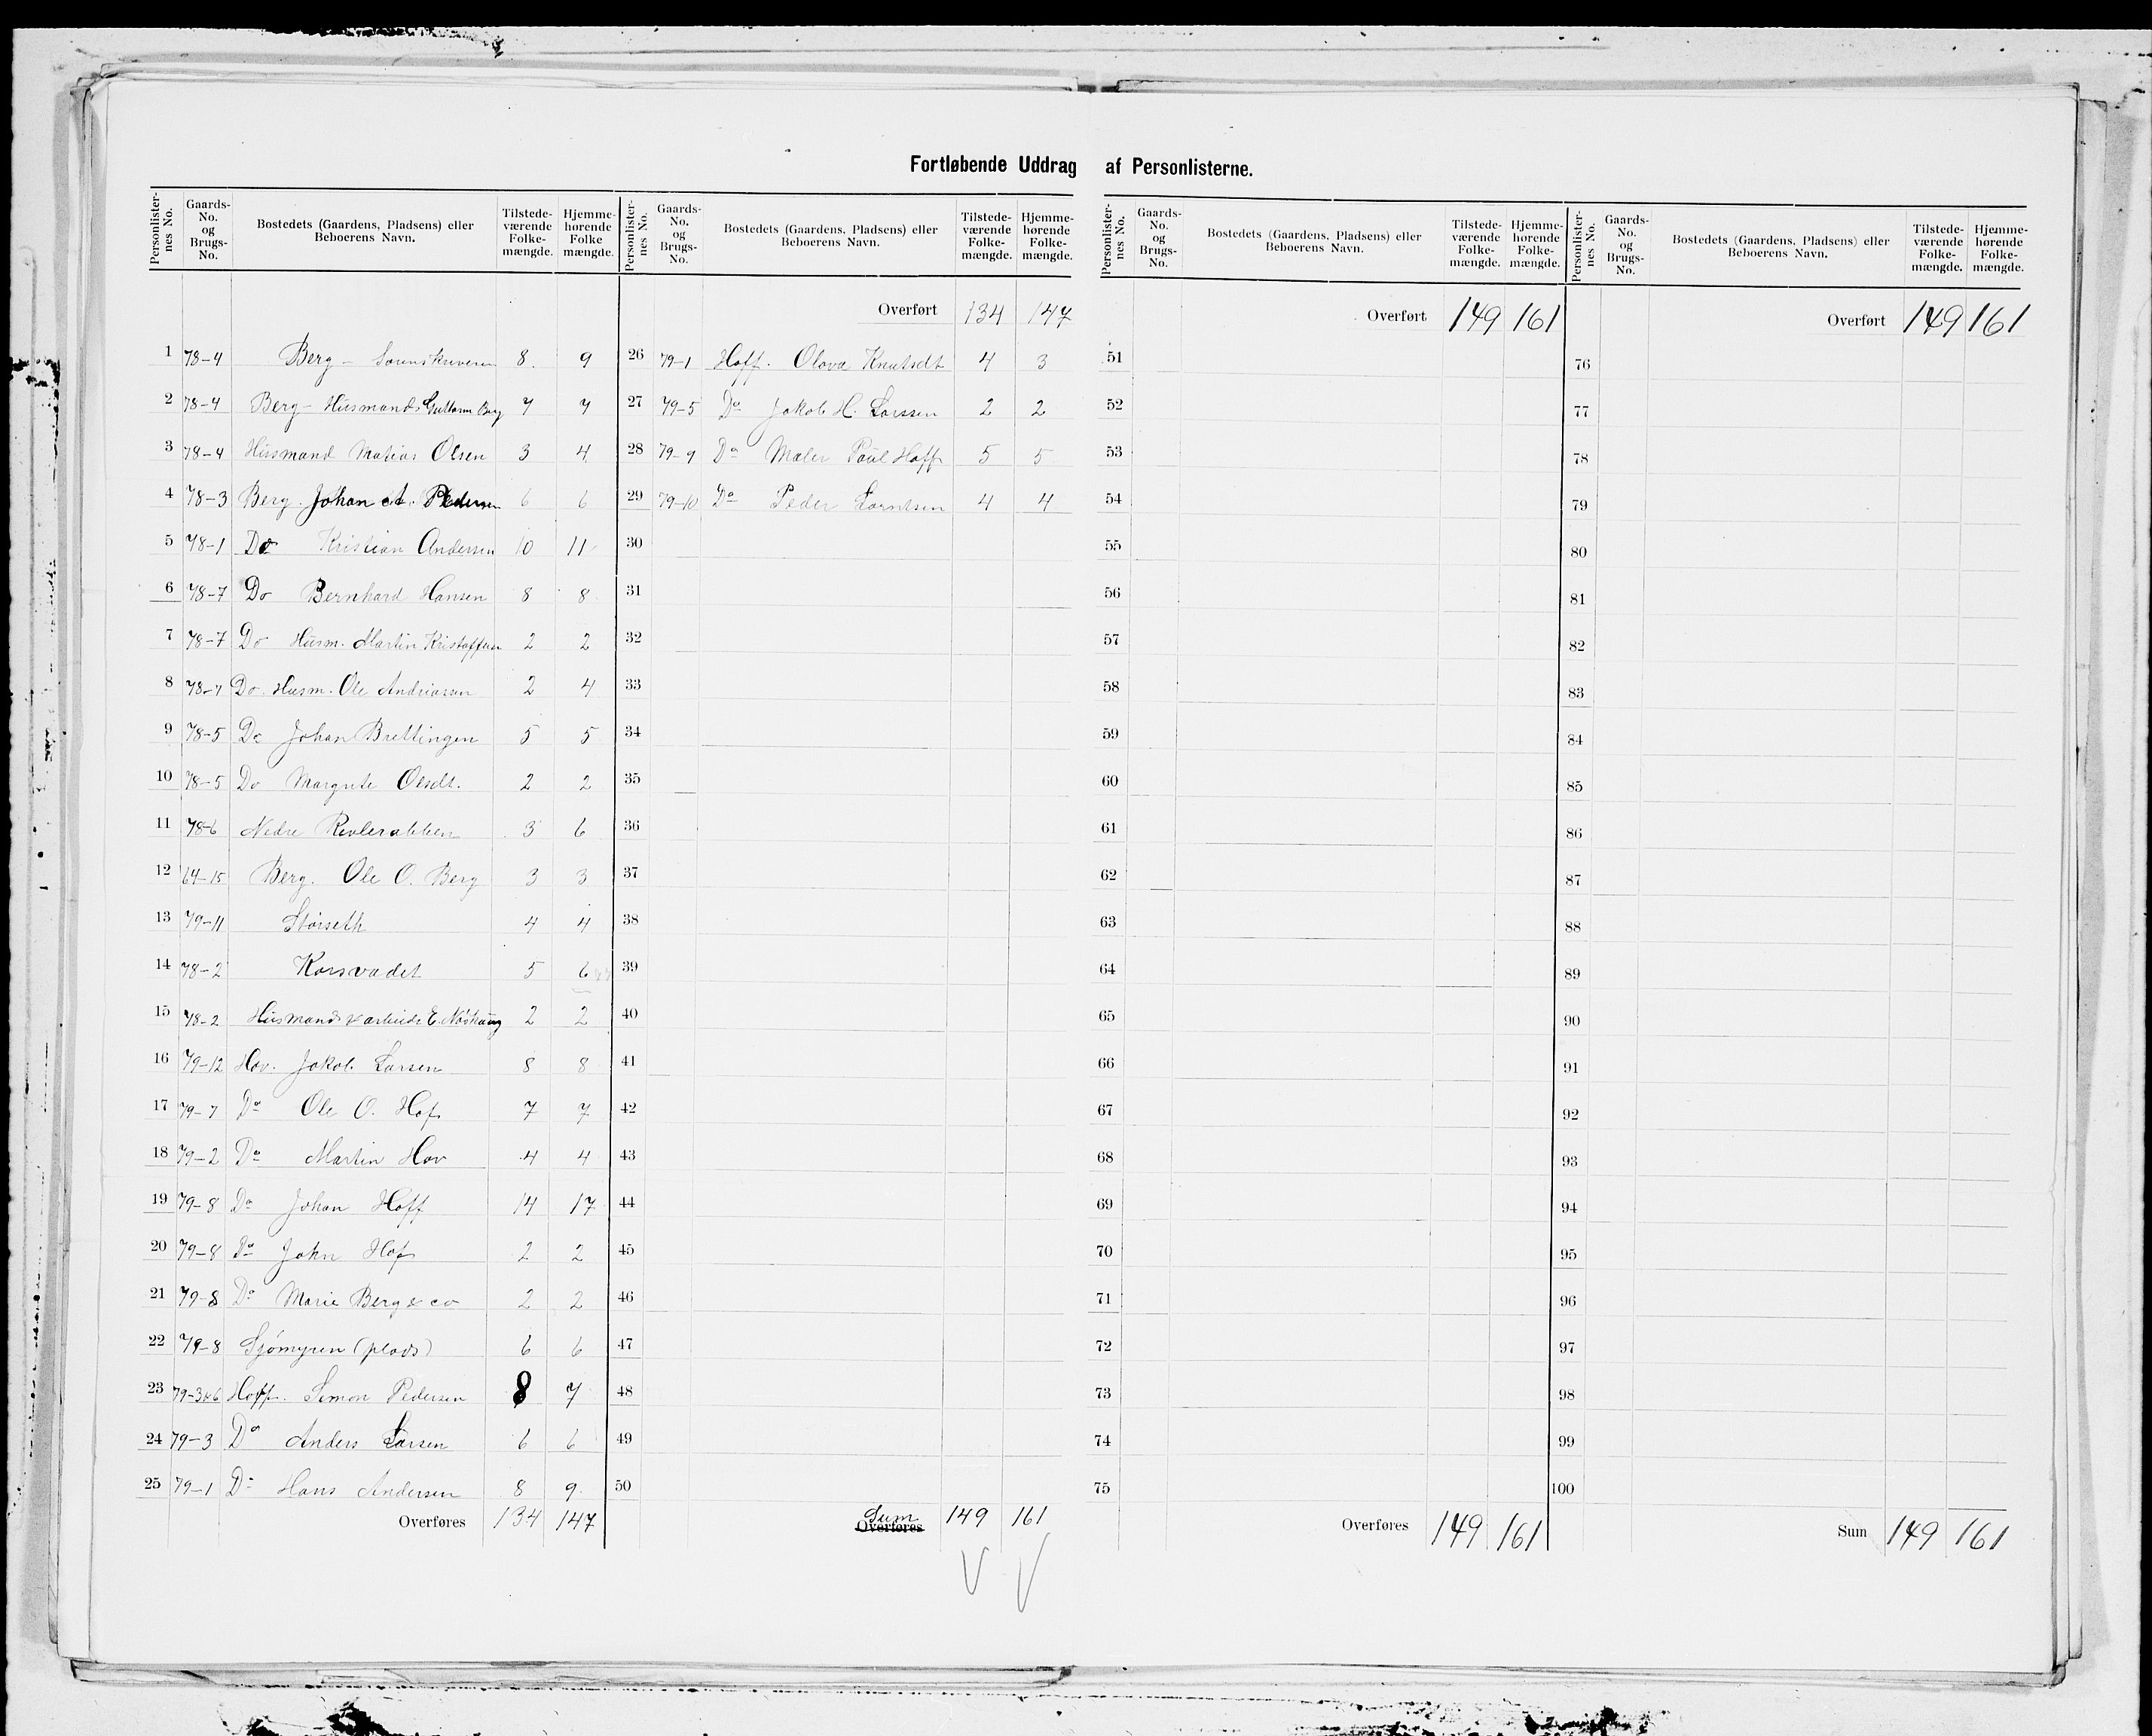 Fortløbende Uddrag af Personlisterne.
Personlister-nes No. | Gaards-No. og Brugs-No. | Bostedets (Gaardens, Pladsens) eller Beboerens Navn. | Tilstede-værende Folke-mængde. | Hjemme-hørende Folke mængde.
1 78-4 Berg - 8. 9
2 78-4 Berg - Husmand Guttorm Berg 7 7
3 78-4 Husmand Matias Olsen 3 4
4 78-3 Berg. Johan A. Pedersen 6 6
5 78-1 Do Kristian Andersen 10 11
6 78-7 Do Bernhard Hansen 8 8
7 78-7 Do Husm. Martin Kristoffersen 2 2
8 78-7 Do. Husm. Ole Andriassen 2 4
9 78-5 Do Johan Brettingen 5 5
10 78-5 Do Margrete Olsdt. 2 2
11 78-6 Nedre 3 6
12 64-15 Berg. Ole O. Berg 3 3
13 79-11 Størseth 4 4
14 78-2 Korsvadet 5 6
15 78-2 2 2
16 79-12 Hov. Jakob Larsen 8 8
17 79-7 Do Ole O. Hof 7 7
18 79-2 Do Martin Hov 4 4
19 79-8 Do Johan Hoff 14 17
20 79-8 Do John Hof 2 2
21 79-8 Do Marie Berg & co 2 2
22 79-8 Sjømyren (plads) 6 6
23 79-3&6 Hoff. Simon Pedersen 8 7
24 79-3 Do Anders Larsen 6 6
25 79-1 Do Hans Andersen 8 9.
Overføres 134 147
Personlister-nes No. | Gaards-No. og Brugs-No. | Bostedets (Gaardens, Pladsens) eller Beboerens Navn. | Tilstede-værende Folke-mængde. | Hjemme-hørende Folke-mængde.
Overført 134 147
26 79-1 Hoff. Olova Knutsdt 4 3
27 79-5 Do Jakob H. Larssen 2 2
28 79-9 Do Maler Paul Hoff 5 5
29 79-10 Do Peder Larntsen 4 4
30
31
32
33
34
35
36
37
38
39
40
41
42
43
44
45
46
47
48
49
50
Sum Overføres 149 161
Personlister-nes No. | Gaards-No. og Brugs-No. | Bostedets (Gaardens, Pladsens) eller Beboerens Navn. | Tilstede-værende Folke-mængde. | Hjemme-hørende Folke-mængde.
Overført 149 161
51
52
53
54
55
56
57
58
59
60
61
62
63
64
65
66
67
68
69
70
71
72
73
74
75
Overføres 149 161
Personlister-nes No. | Gaards-No. og Brugs-No. | Bostedets (Gaardens, Pladsens) eller Beboerens Navn. | Tilstede-værende Folke-mængde. | Hjemme-hørende Folke-mængde.
Overført 149 161
76
77
78
79
80
81
82
83
84
85
86
87
88
89
90
91
92
93
94
95
96
97
98
99
100
Sum 149 161